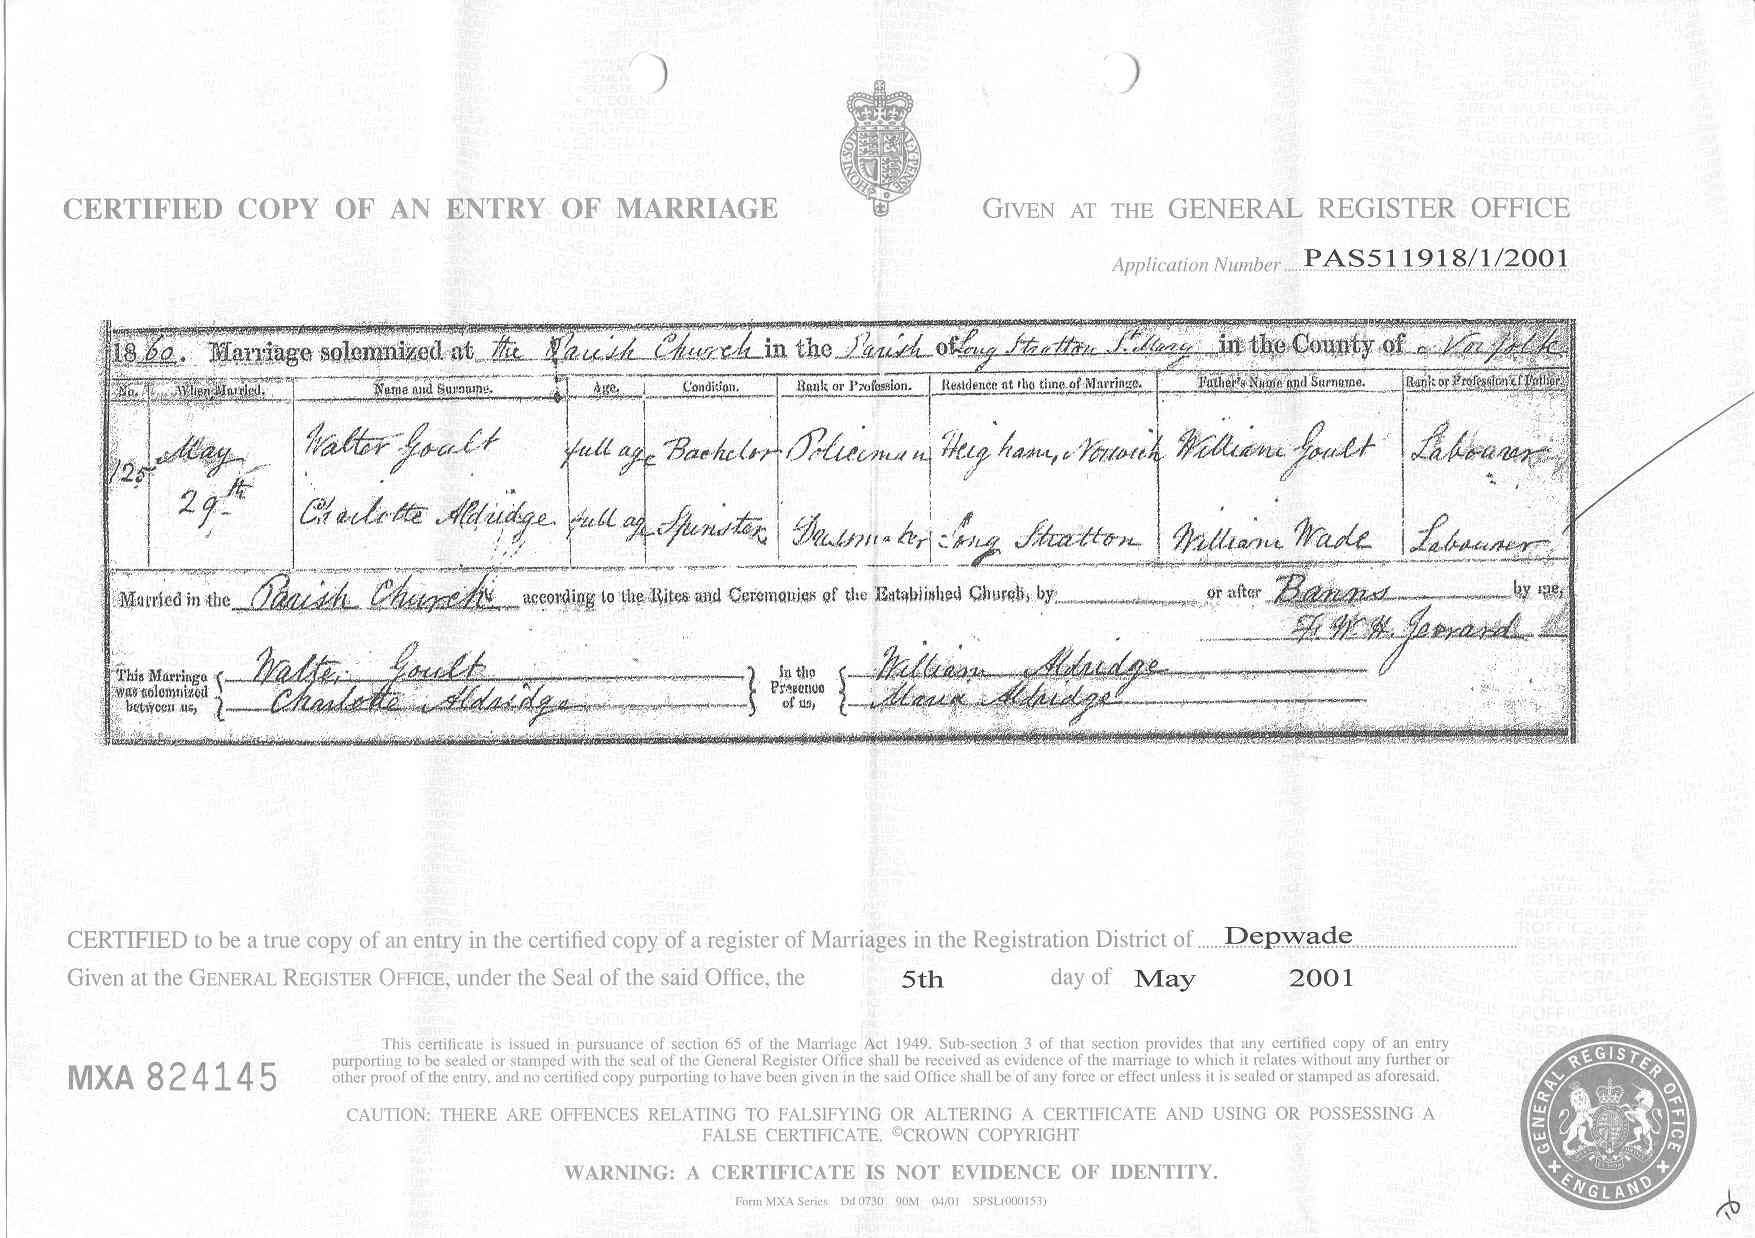 CERTIFIED COPY OF AN ENTRY OF MARRIAGE
GIVEN AT THE GENERAL REGISTER OFFICE
Application Number PAS511918/1/2001
1860. Marriage solemnized at the Parish Church in the Parish of Long Stratton St. Mary in the County of Norfolk
No. When Married. Name and Surname. Age. Condition. Rank or Profession. Residence at the time of Marriage. Father's Name and Surname. Rank or Profession of Father.
125 May 29th
Walter Goult full age Bachelor Policeman Heigham, Norwich William Goult Labourer
Charlotte Aldridge full age Spinster Dressmaker Long Stratton William Wade Labourer
Married in the Parish Church according to the Rites and Ceremonies of the Established Church, by or after Banns by me,
F. W. H. Jerrard
This Marriage was solemnized between us, Walter Goult Charlotte Aldridge
In the Presence of us, William Aldridge Maria Aldridge
CERTIFIED to be a true copy of an entry in the certified copy of a register of Marriages in the Registration District of Depwade
Given at the GENERAL REGISTER OFFICE, under the Seal of the said Office, the 5th day of May 2001
MXA 824145
This certificate is issued in pursuance of section 65 of the Marriage Act 1949. Sub-section 3 of that section provides that any certified copy of an entry
purporting to be sealed or stamped with the seal of the General Register Office shall be received as evidence of the marriage to which it relates without any further or
other proof of the entry, and no certified copy purporting to have been given in the said Office shall be of any force or effect unless it is sealed or stamped as aforesaid.
CAUTION: THERE ARE OFFENCES RELATING TO FALSIFYING OR ALTERING A CERTIFICATE AND USING OR POSSESSING A
FALSE CERTIFICATE. ©CROWN COPYRIGHT
WARNING: A CERTIFICATE IS NOT EVIDENCE OF IDENTITY.
Form MXA Series Dd 0730 90M 04/01 SPSL(000153)
GENERAL REGISTER OFFICE
ENGLAND